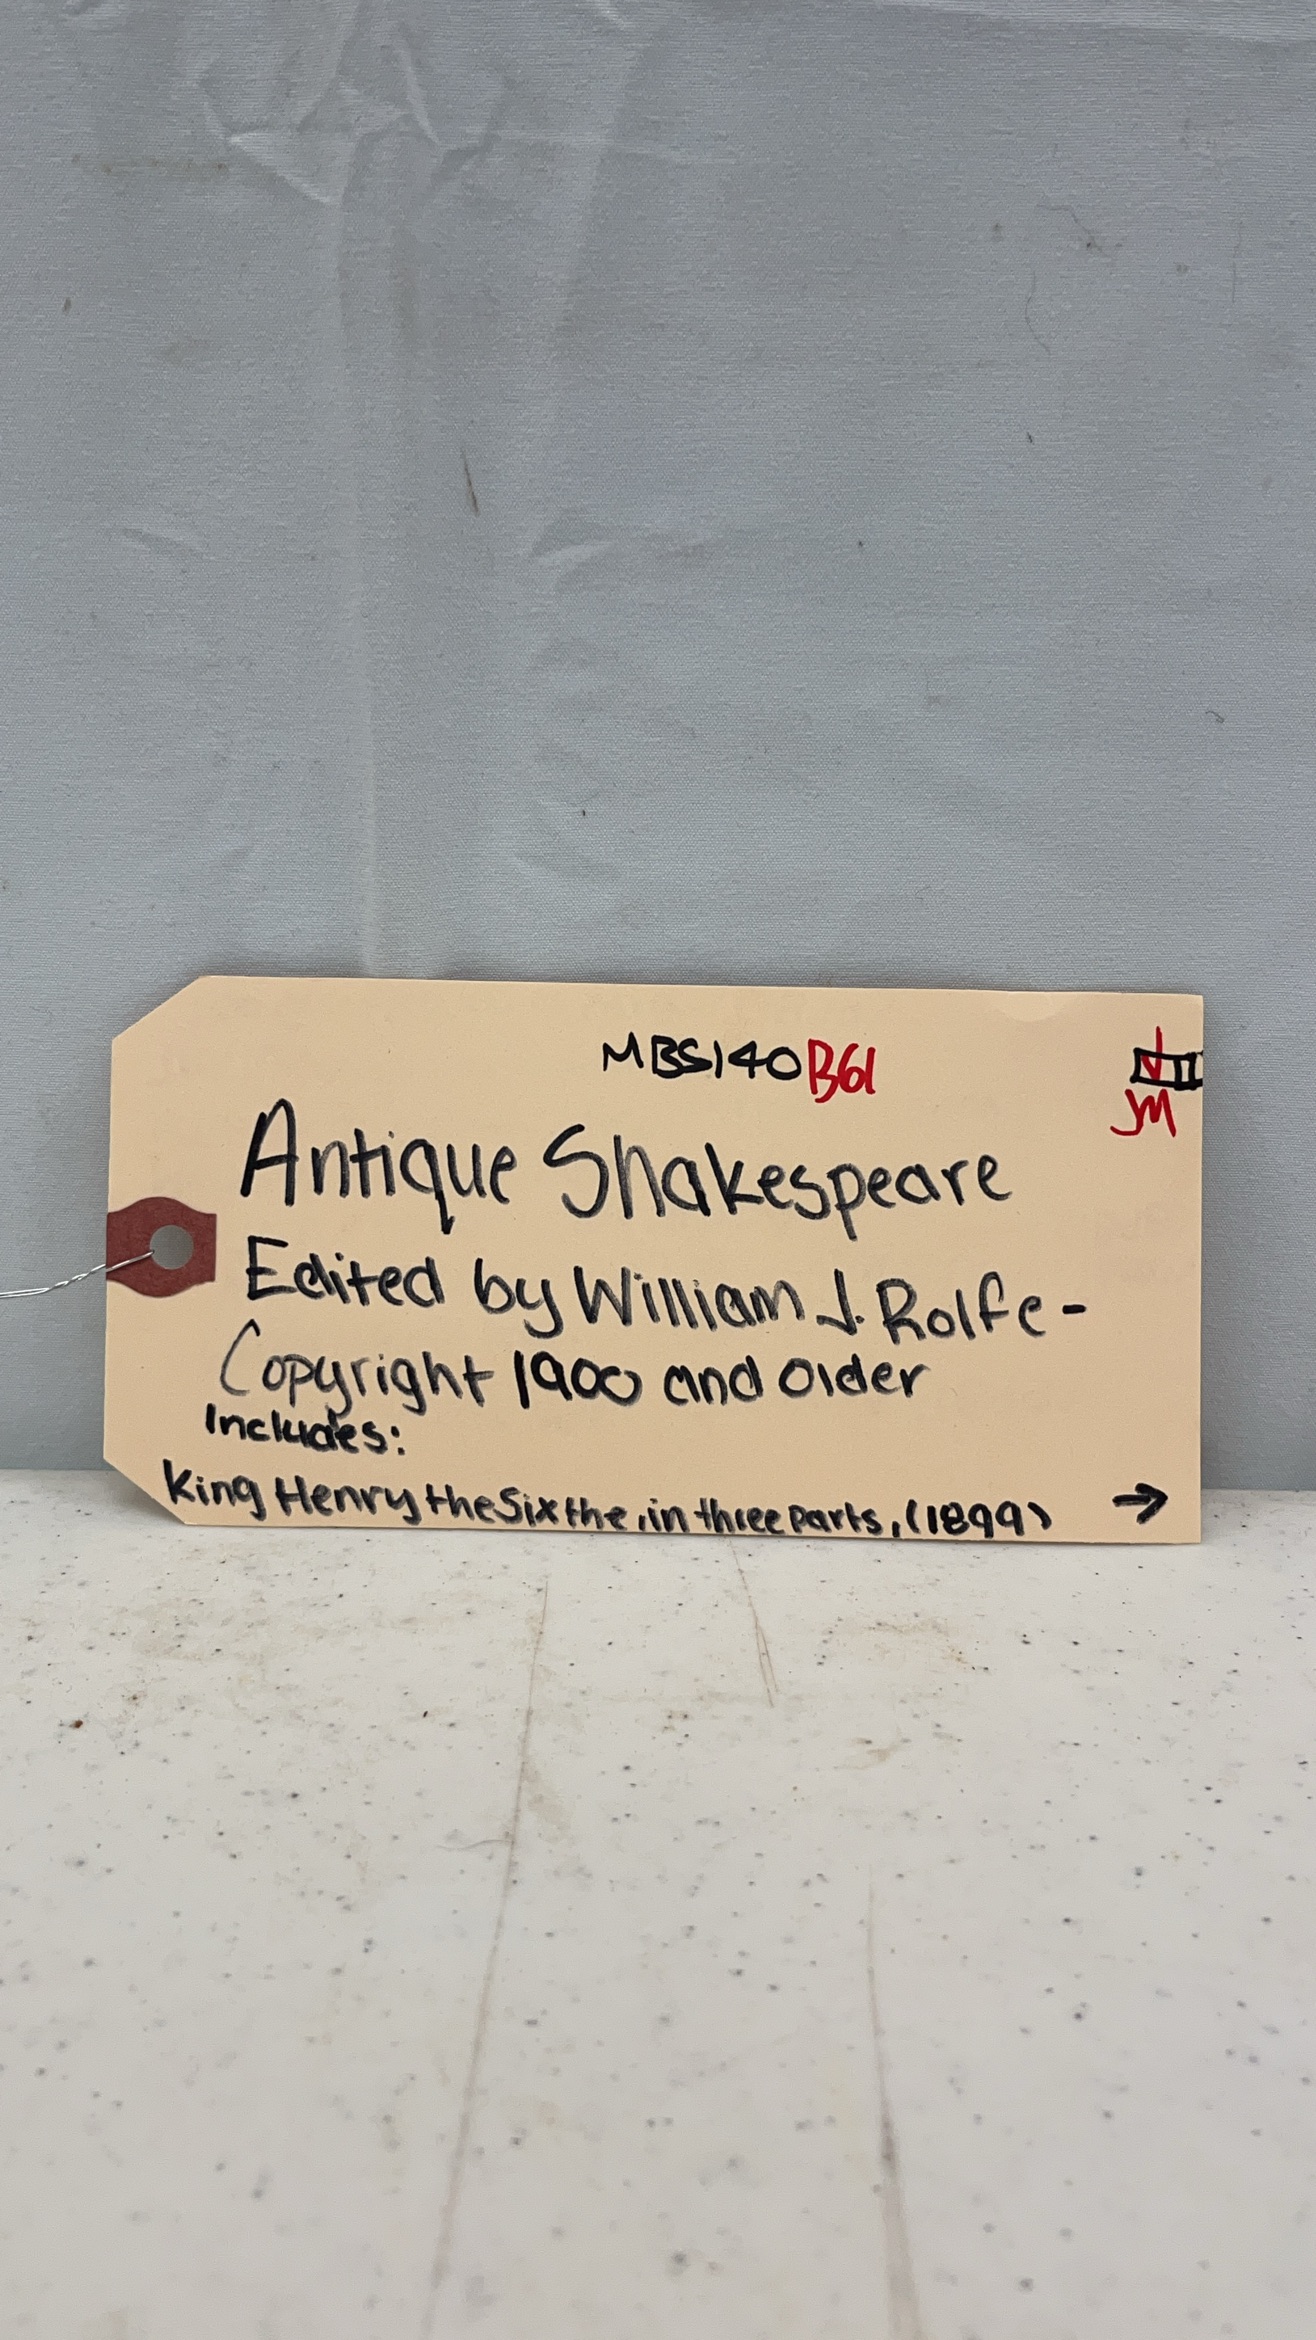 MBS140 B61
JM
Antique Shakespeare
Edited by William J. Rolfe -
Copyright 1900 and older
Includes:
King Henry the Sixthe, in three parts, (1899) →